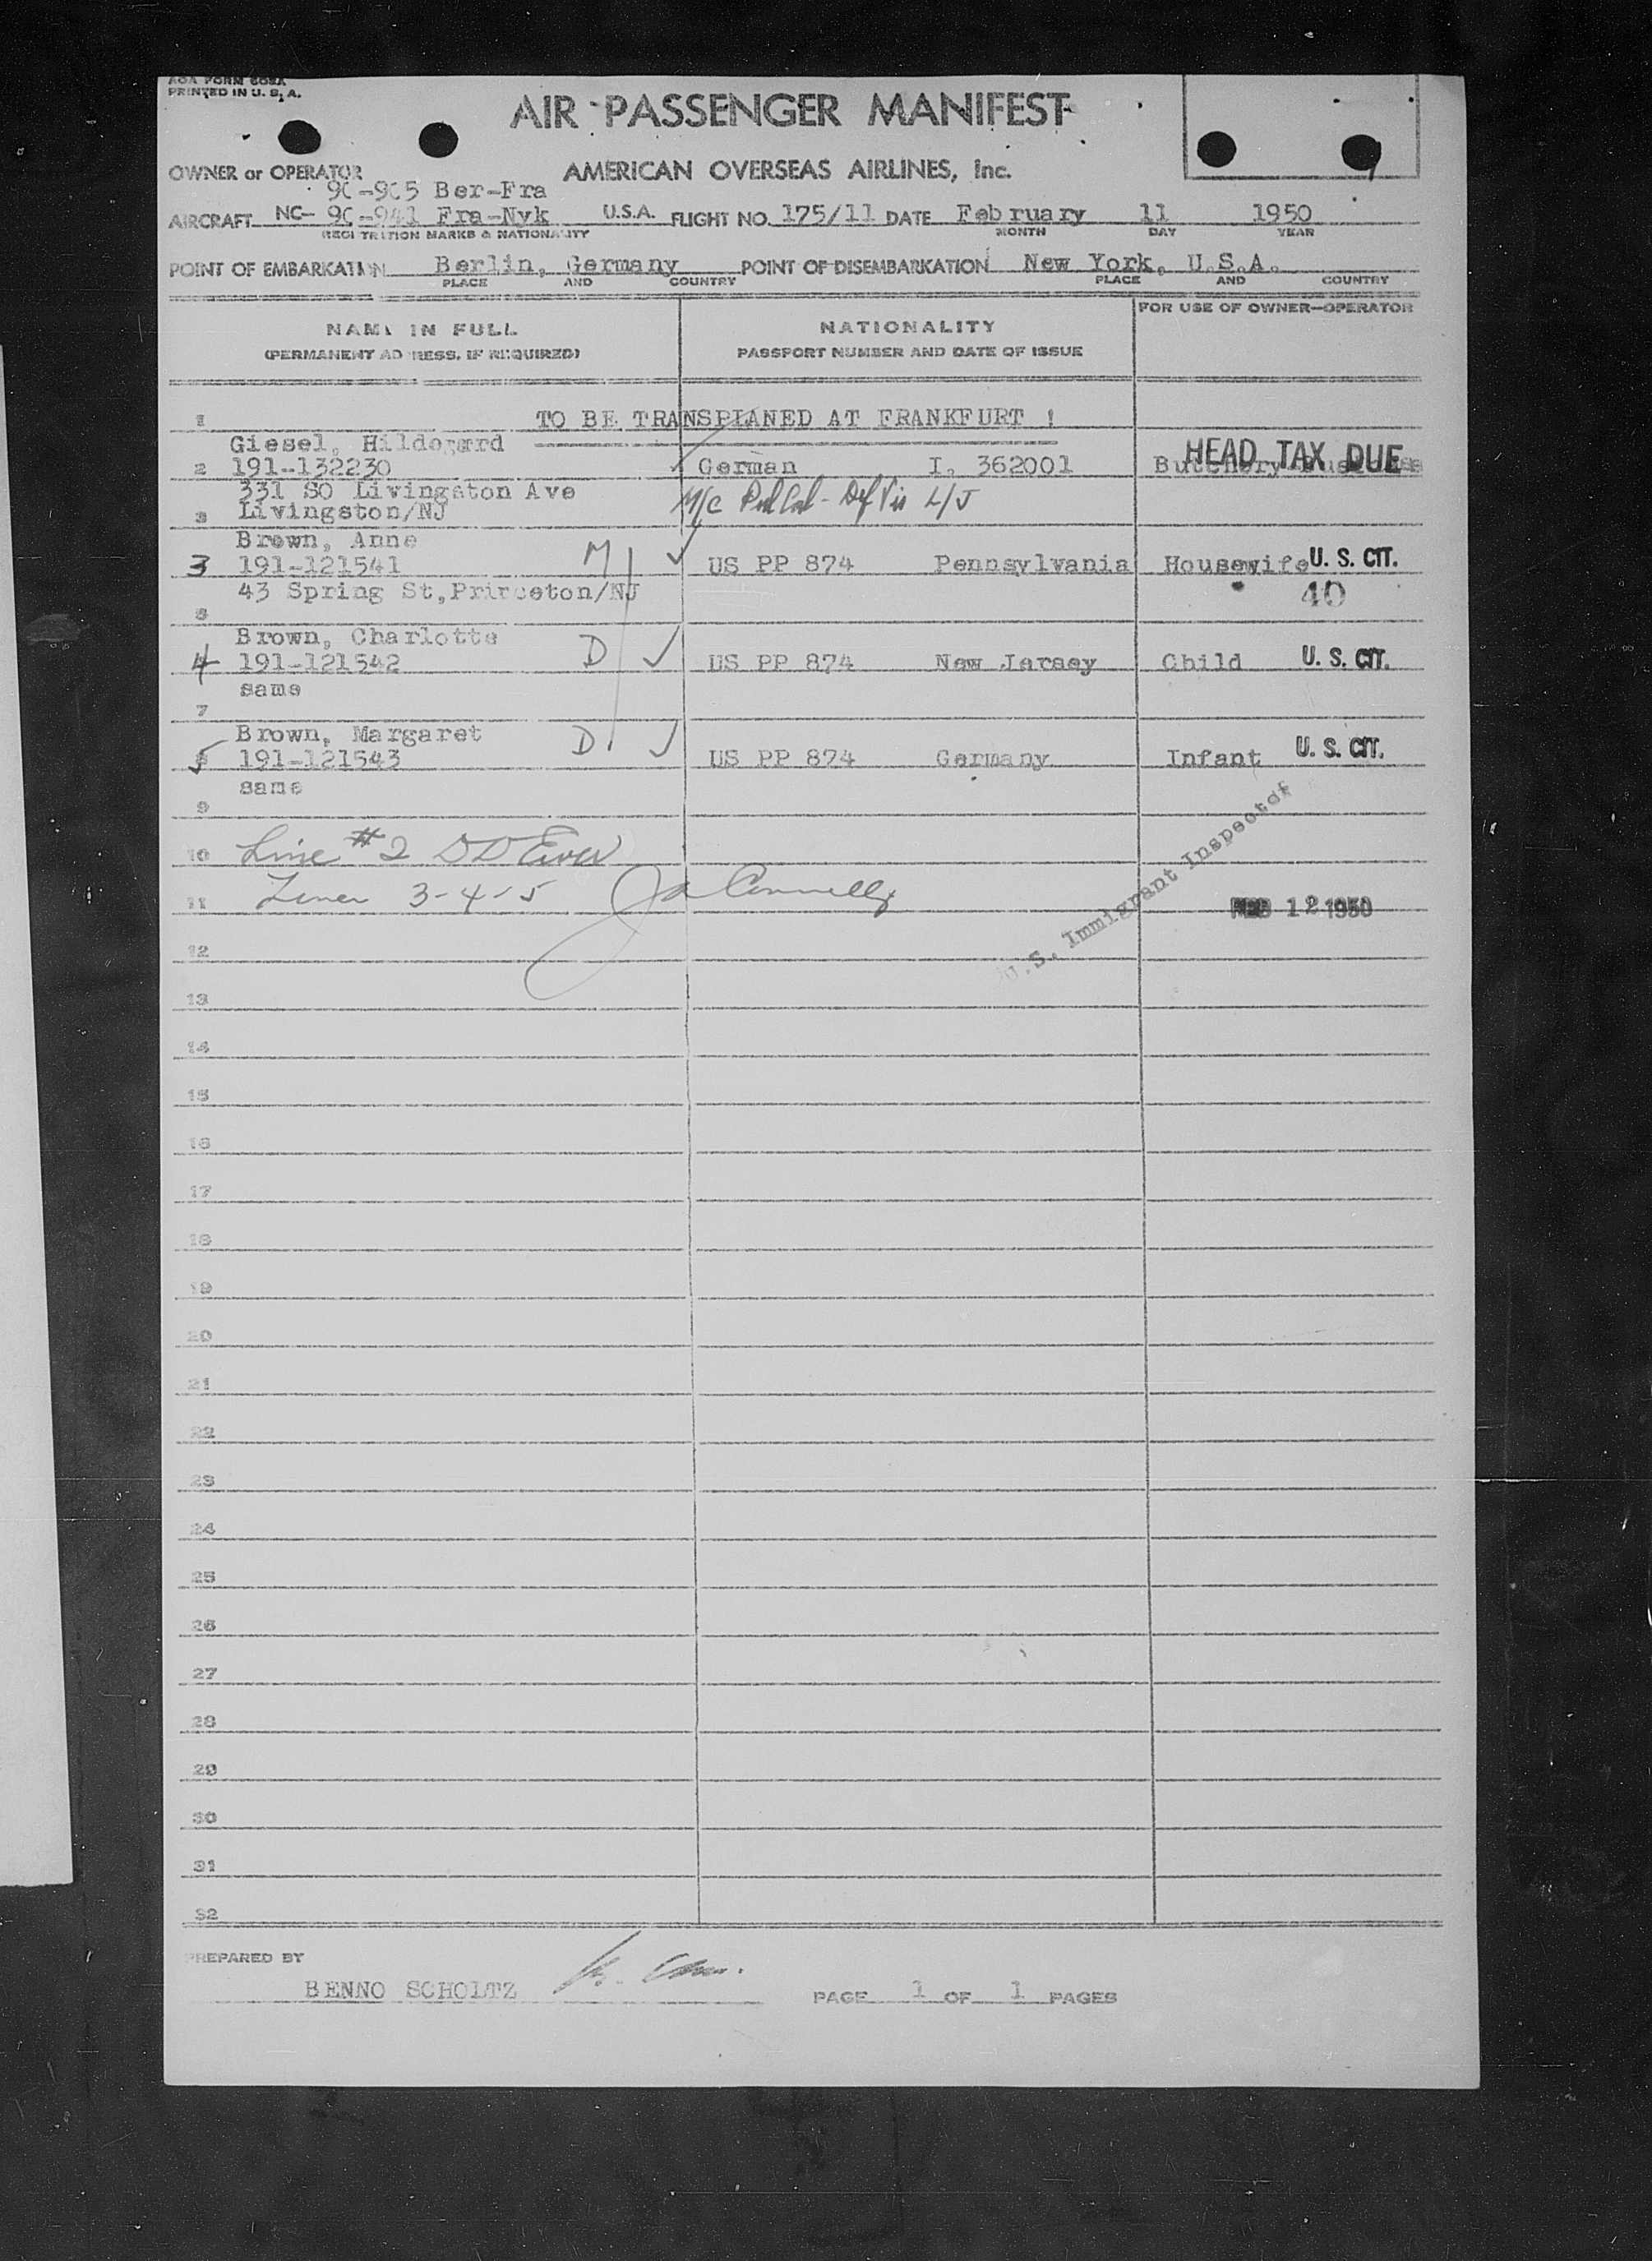 AOA FORM 608A
PRINTED IN U. S. A.
AIR PASSENGER MANIFEST
OWNER or OPERATOR AMERICAN OVERSEAS AIRLINES, Inc.
90-905 Ber-Fra
AIRCRAFT NC- 90-941 Fra-Nyk U.S.A. FLIGHT NO. 175/11 DATE February 11 1950
MARKS & NATIONALITY MONTH DAY YEAR
POINT OF EMBARKATION Berlin, Germany POINT OF DISEMBARKATION New York, U.S.A.
PLACE AND COUNTRY PLACE AND COUNTRY
FOR USE OF OWNER—OPERATOR
NAME IN FULL NATIONALITY
(PERMANENT ADDRESS, IF REQUIRED) PASSPORT NUMBER AND DATE OF ISSUE
1 TO BE TRANSPLANED AT FRANKFURT !
Giesel, Hildegard HEAD TAX DUE
2 191-132230 German I. 362001
331 SO Livingston Ave M/C
3 Livingston/NJ
Brown, Anne
3 191-121541 M US PP 874 Pennsylvania Housewife U. S. CIT.
43 Spring St,Princeton/NJ 40
5
Brown, Charlotte
4 191-121542 D US PP 874 New Jersey Child U. S. CIT.
same
7
Brown, Margaret
5 191-121543 D US PP 874 Germany Infant U. S. CIT.
same
9
10 Line #2
11 3-4-5
U.S. Immigrant Inspector
FEB 12 1950
12
13
14
15
16
17
18
19
20
21
22
23
24
25
26
27
28
29
30
31
32
PREPARED BY
BENNO SCHOLTZ PAGE 1 OF 1 PAGES